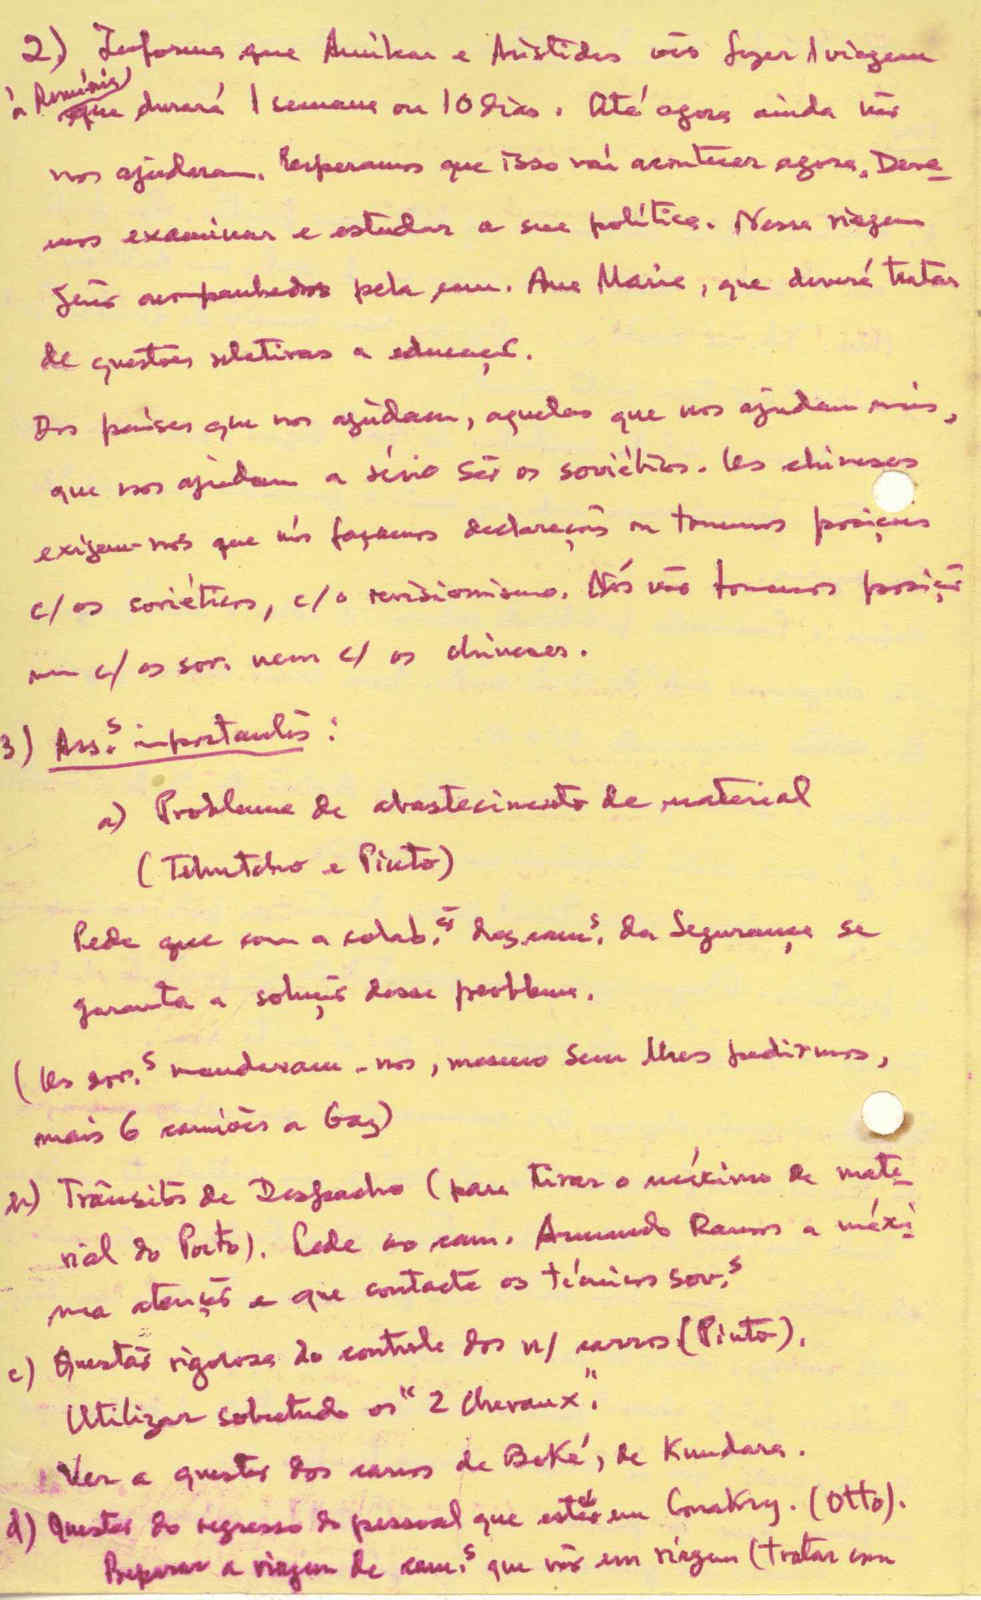 2) Informa que Amílcar e Aristides vão fazer 1 viagem
à Roménia que durará 1 semana ou 10 dias. Até agora ainda não
nos ajudaram. Esperamos que isso vai acontecer agora. Deve-
mos examinar e estudar a sua política. Nessa viagem
serão acompanhados pela cam. Ana Maria, que deverá tratar
de questões relativas a educação.
Dos países que nos ajudam, aqueles que nos ajudam mais,
que nos ajudam a sério são os soviéticos. Os chineses
exigem-nos que nós façamos declarações ou tomemos posições
c/ os soviéticos, c/ o revisionismo. Nós não tomamos posição
nem c/ os sov. nem c/ os chineses.
3) Ass.s importantes:
a) Problema de abastecimento de material
(Tchutcho e Pinto)
Pede que com a colab.ão dos cam.s da Segurança se
garanta a solução desse problema.
(Os sov.s mandaram-nos, mesmo sem lhes pedirmos,
mais 6 camiões a Gaz)
b) Trânsitos de Despacho (para tirar o máximo de mate-
rial do Porto). Pede ao cam. Armando Ramos a máxi-
ma atenção e que contacte os técnicos sov.s
c) Questão rigorosa do controle dos n/ carros (Pinto).
Utilizar sobretudo os "2 chevaux".
Ver a questão dos carros de Boké, de Kundara.
d) Questão do regresso do pessoal que está em Conakry. (Otto).
Preparar a viagem de cam.s que vão em viagem (tratar com